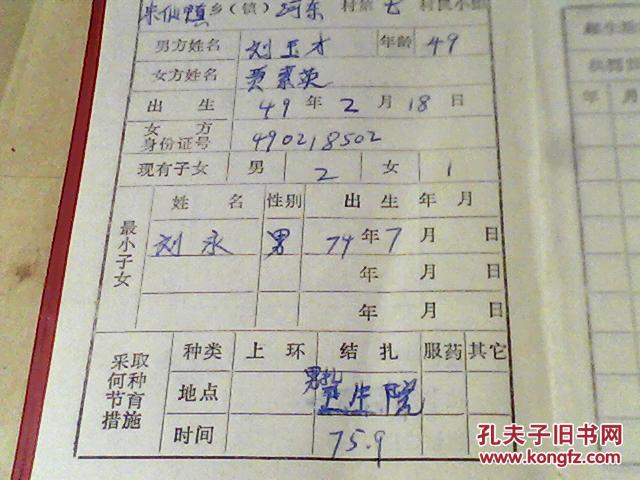 朱仙镇乡(镇)河东村第七村民小组
男方姓名 刘玉才 年龄 49
女方姓名 贾素英
出生 49年2月18日
女方
身份证号 490218502
现有子女 男 2 女 1
最小子女
姓名 性别 出生年月
刘永 男 74年7月 日
年 月 日
年 月 日
采取何种节育措施
种类 上环 结扎 服药 其它
男扎
地点 卫生院
时间 75.9
年 月
孔夫子旧书网
www.kongfz.com